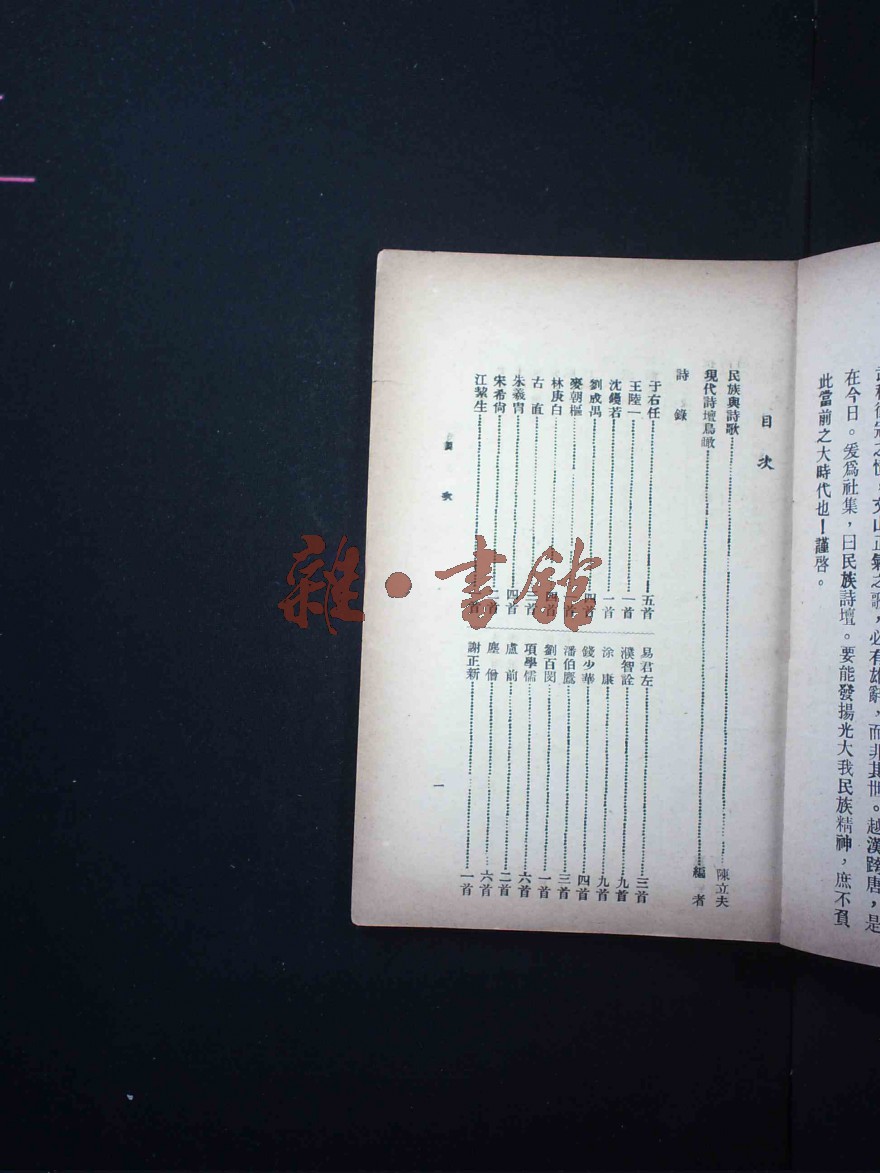 在今日。爰爲社集，曰民族詩壇。要能發揚光大我民族精神，庶不負
此當前之大時代也！謹啓。
目次
民族與詩歌……陳立夫
現代詩壇鳥瞰……編者
詩錄
于右任……五首
王陸一……一首
沈鏝若……一首
劉成禺……四首
麥朝樞……首
林庚白……四首
古直……首
朱羲胄……四首
宋希尙……二首
江絜生……首
易君左……三首
濮智詮……九首
涂康……九首
錢少華……四首
潘伯鷹……三首
劉百閔……一首
項學儒……六首
盧前……二首
塵僧……六首
謝正新……一首
目次
一
雜·書館